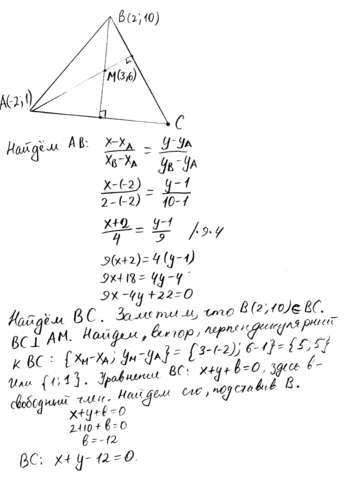 B(2;10)
M(3;6)
A(-2;1)
C
Найдём AB: (x-x_A)/(x_B-x_A) = (y-y_A)/(y_B-y_A)
(x-(-2))/(2-(-2)) = (y-1)/(10-1)
(x+2)/4 = (y-1)/9 /·9·4
9(x+2)=4(y-1)
9x+18=4y-4
9x-4y+22=0
Найдём BC. Заметим, что B(2;10)∈BC.
BC⊥AM. Найдем вектор, перпендикулярный
к BC: {x_M-x_A; y_M-y_A} = {3-(-2); 6-1} = {5;5}
или {1;1}. Уравнение BC: x+y+b=0, здесь b-
свободный член. Найдем его, подставив B.
x+y+b=0
2+10+b=0
b=-12
BC: x+y-12=0.